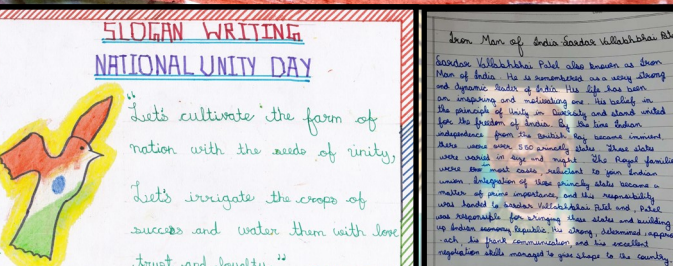 SLOGAN WRITING
NATIONAL UNITY DAY
"Let's cultivate the farm of
nation with the seeds of unity,
Let's irrigate the crops of
success and water them with love
trust and loyalty."
Iron Man of India Sardar Vallabhbhai
Sardar Vallabhbhai Patel also known as Iron
Man of India. He is remembered as a very strong
and dynamic leader of India. His life has been
an inspiring and motivating one. His belief in
the principle of Unity in Diversity and stand united
for the freedom of India. By the time Indian
independence from the British Raj became imminent,
there were over 560 princely states. These states
were varied in size and might. The Royal families
were in most cases reluctant to join Indian
union. Integration of these princely states became a
matter of prime importance, and this responsibility
was handed to Sardar Vallabhbhai Patel and, Patel
was responsible for bringing these states and building
up Indian economy, Republic. His strong, determined, appro
-ach, his frank communication and his excellent
negotiation skills managed to give shape to the country.